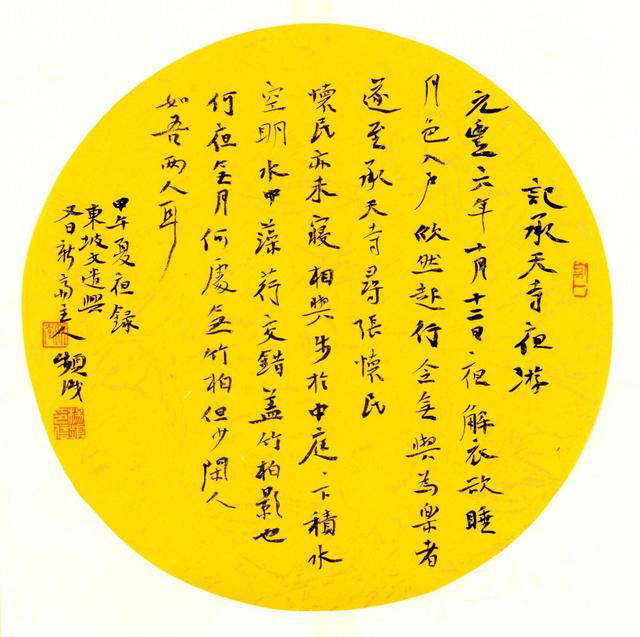 記承天寺夜游
元豐六年十月十二日夜解衣欲睡
月色入户欣然起行念無與為樂者
遂至承天寺尋張懷民
懷民亦未寢相與步於中庭、下積水
空明水中藻荇交錯蓋竹柏影也
何夜無月何處無竹柏但少閑人
如吾兩人耳
甲午夏夜録
東坡文遣興
又日新齋主人